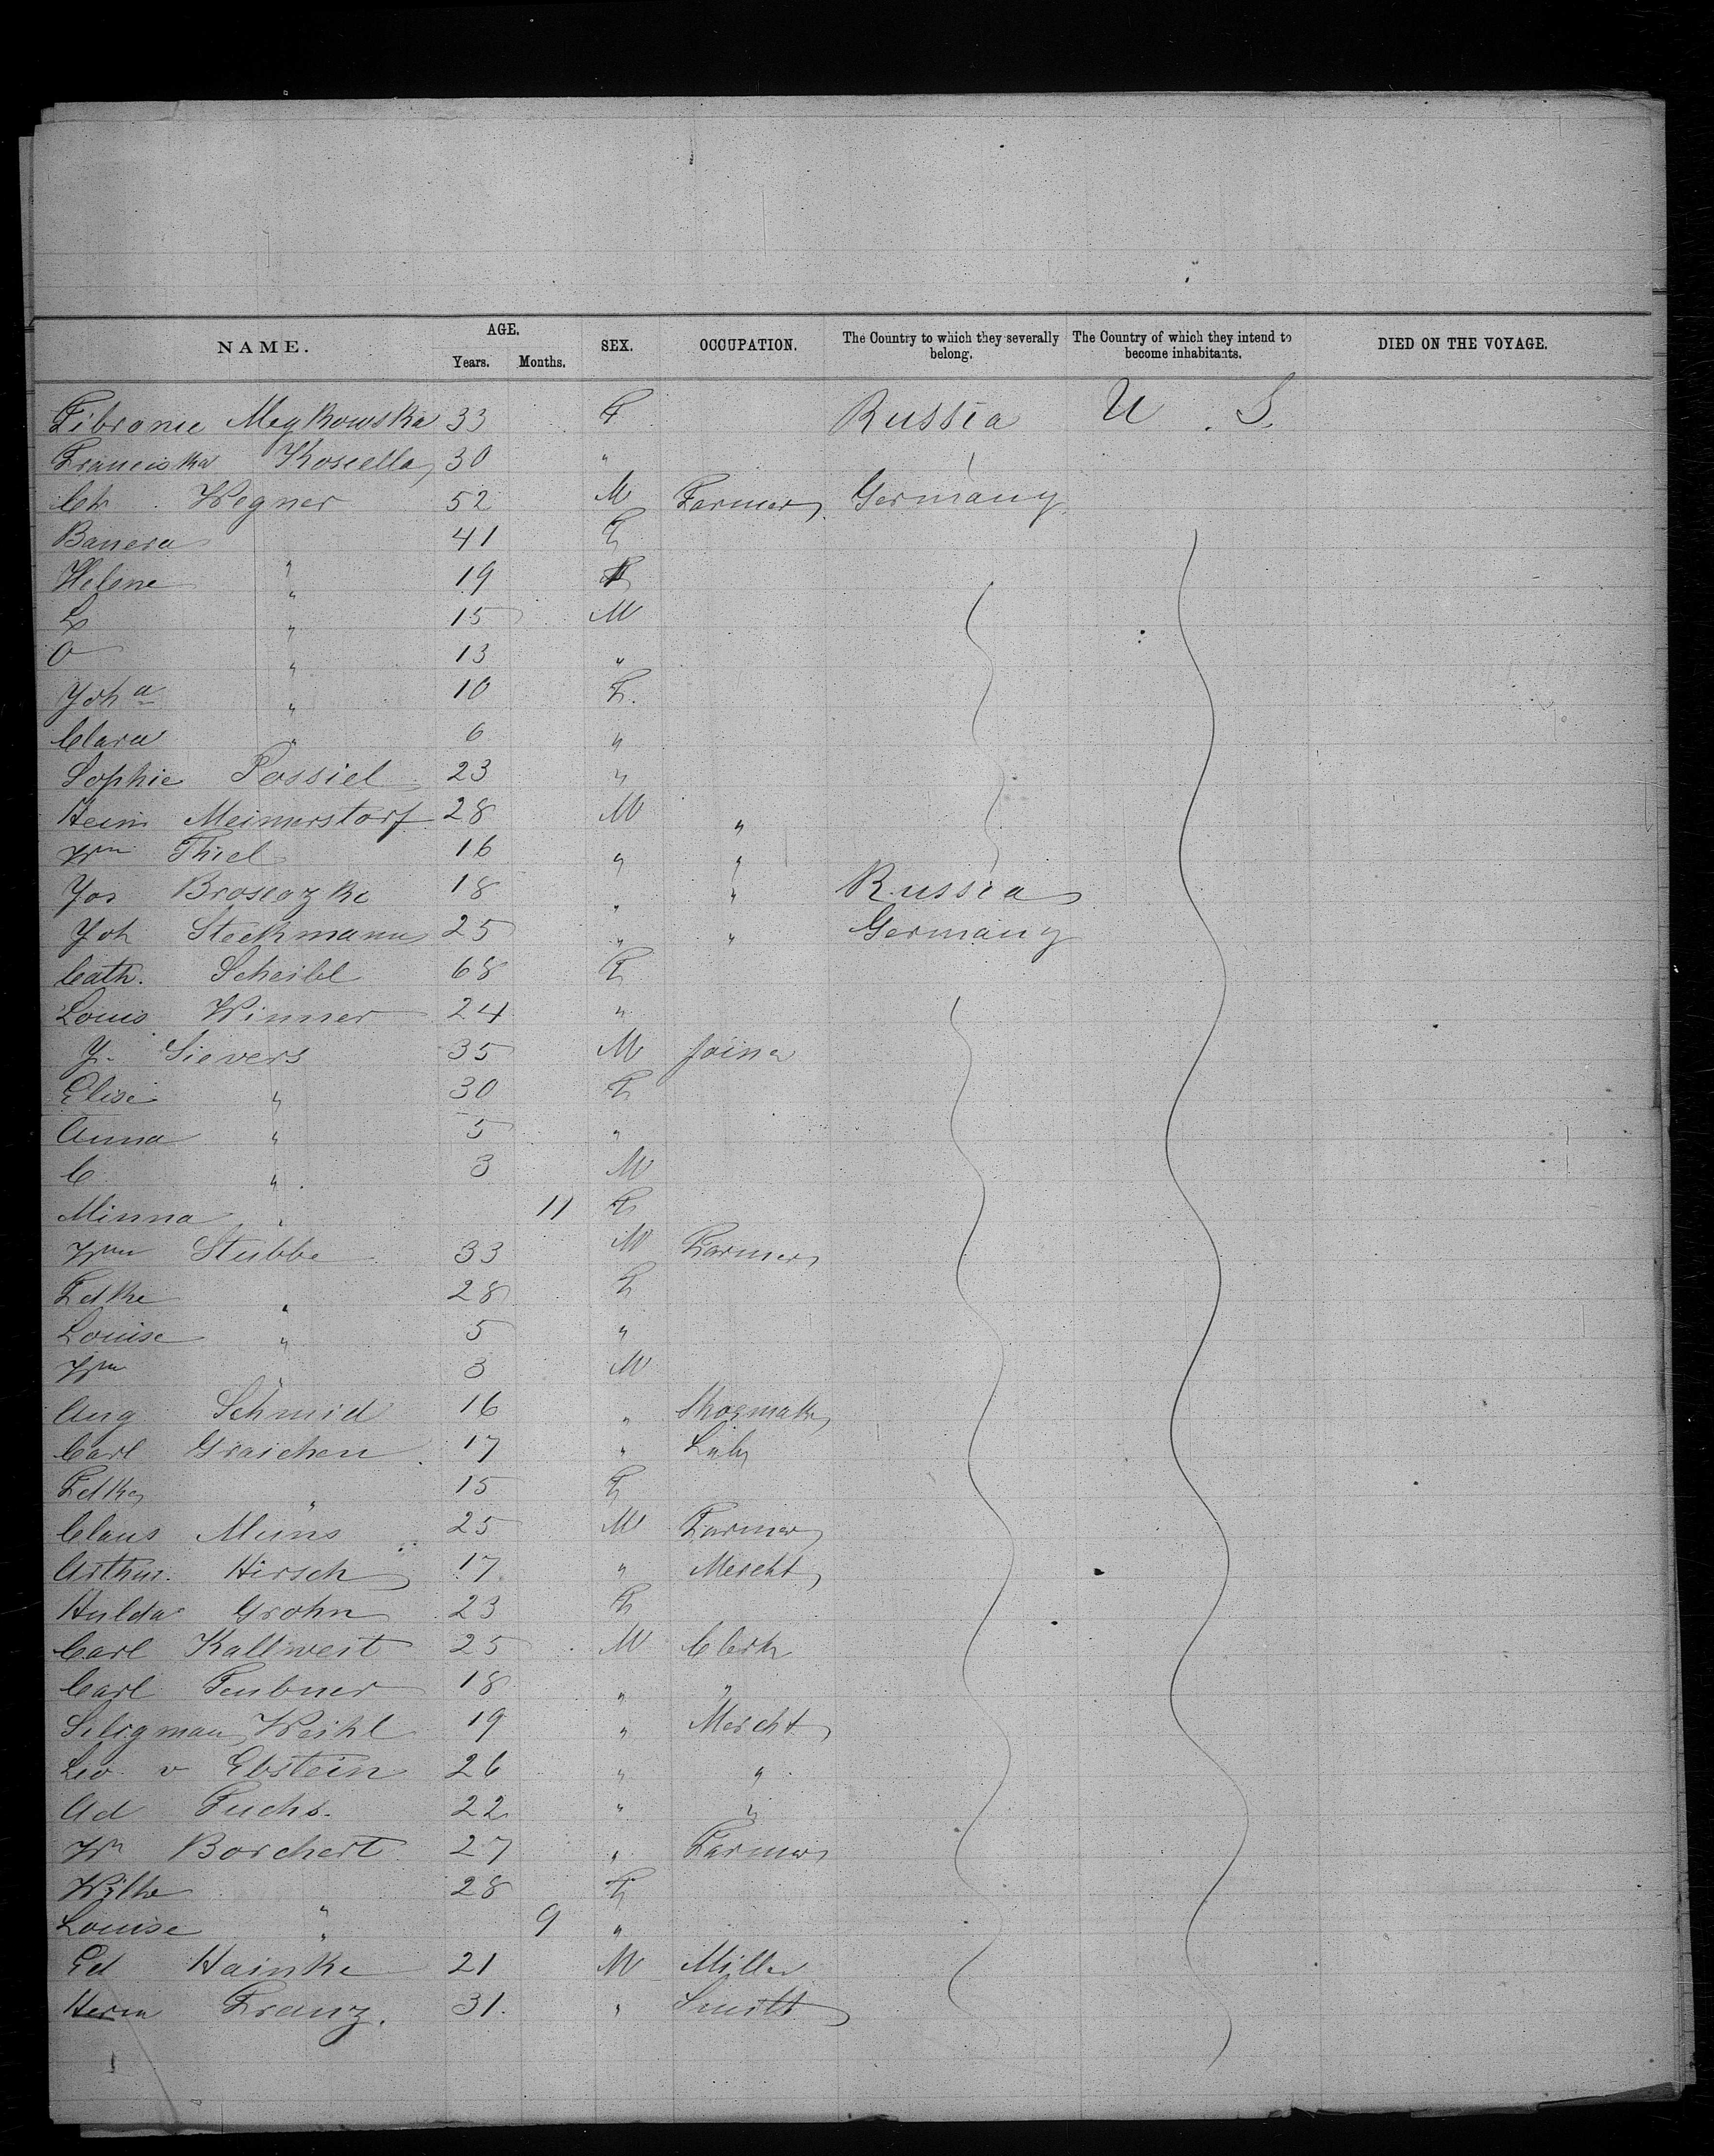 NAME. AGE. Years. Months. SEX. OCCUPATION. The Country to which they severally belong. The Country of which they intend to become inhabitants. DIED ON THE VOYAGE.
Megkowska 33 F Russia U. S.
Franciska Kosiella 30 "
Ch. Wegner 52 M Farmer Germany
41 F
Helene " 19 F
L " 15 M
O " 13 "
Joh a " 10 F.
Clara " 6 "
Sophie Possiel 23 "
Meimerstorf 28 M "
Wm Thiel 16 " "
Jos 18 " " Russia
Joh Steckmann 25 " " Germany
Cath. Scheibl 68 F
Louis Winner 24 "
J. Sievers 35 M Joiner
Elise " 30 F
Anna " 5 "
C " 3 M
Minna " 11 F
Wm Stubbe 33 M Farmer
Fdke " 28 F
Louise " 5 "
Wm " 3 M
Aug Schmid 16 " Shoemakr
Carl Graichen 17 "
Fdke " 15 F
Claus Muns 25 M Farmer
Arthur Hirsch 17 " Mercht
Hulda Grohn 23 F
Carl Kallweit 25 M Clerk
Carl Teubner 18 " "
Seligman Weihl 19 " Mercht
Leo v Ebstein 26 " "
Ad Fuchs. 22 " "
Wm Borchert 27 " Farmer
Wilhe " 28 F
Louise " 9 "
Ed Hainke 21 M Miller
Herm Franz. 31. " Smith